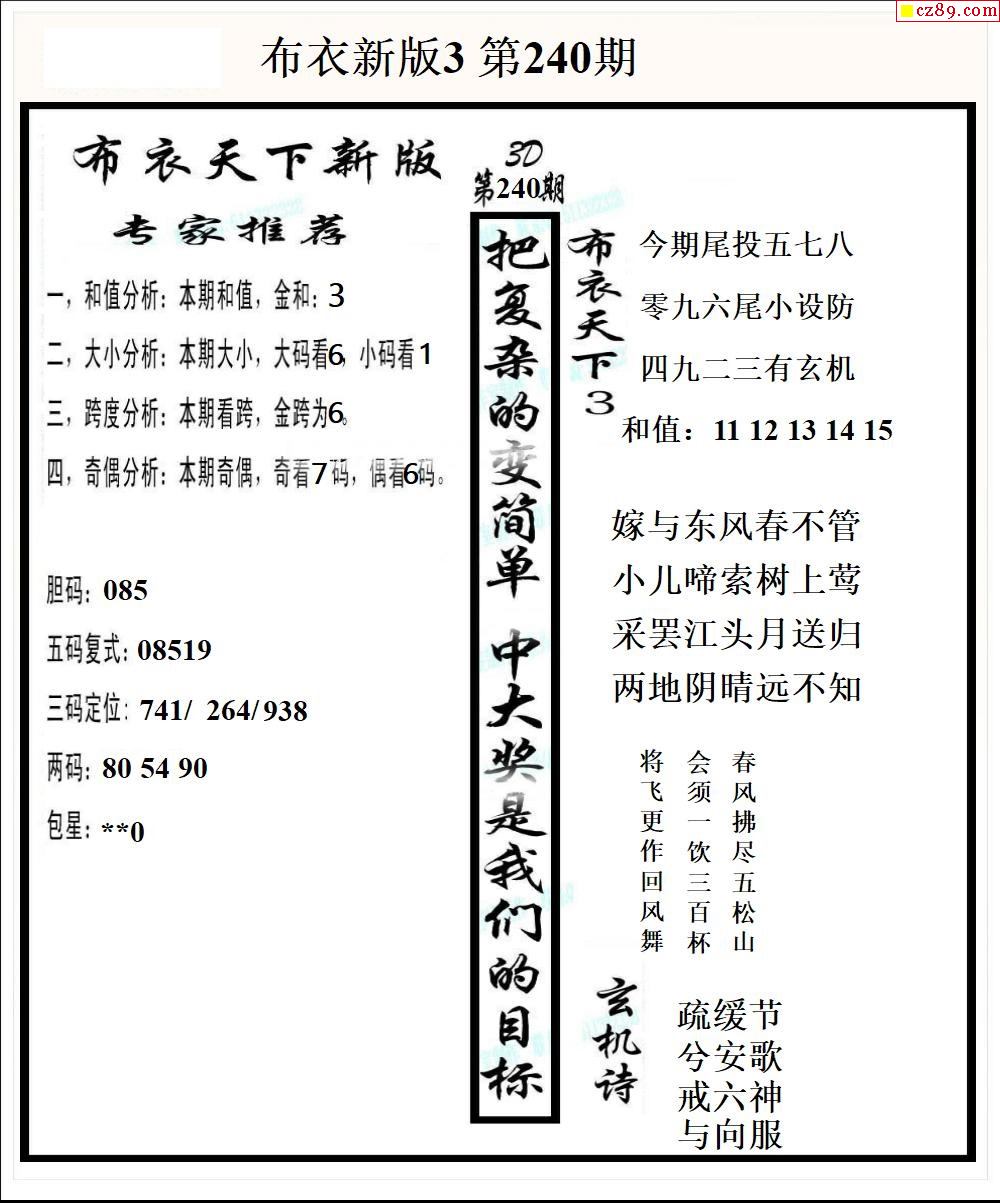 cz89.com
布衣新版3 第240期
布衣天下新版
专家推荐
一，和值分析：本期和值，金和：3
二，大小分析：本期大小，大码看6，小码看1
三，跨度分析：本期看跨，金跨为6。
四，奇偶分析：本期奇偶，奇看7码，偶看6码。
胆码：085
五码复式：08519
三码定位：741/ 264/938
两码：80 54 90
包星：**0
3D
第240期
把复杂的变简单 中大奖是我们的目标
布衣天下3
今期尾投五七八
零九六尾小设防
四九二三有玄机
和值：11 12 13 14 15
嫁与东风春不管
小儿啼索树上莺
采罢江头月送归
两地阴晴远不知
春风拂尽五松山
会须一饮三百杯
将飞更作回风舞
玄机诗
疏缓节
兮安歌
戒六神
与向服